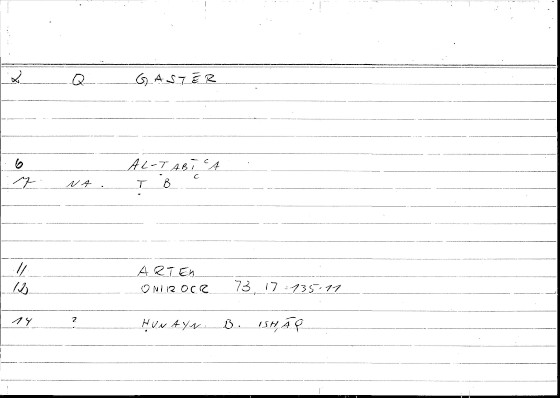 2 Q GASTĒR
6 AL-ṬABĪʿA
17 NA. Ṭ B ʿ
11 ARTEM
12 ONIROCR 73,17-135.11
14 ? ḤUNAYN. B. ISḤĀQ